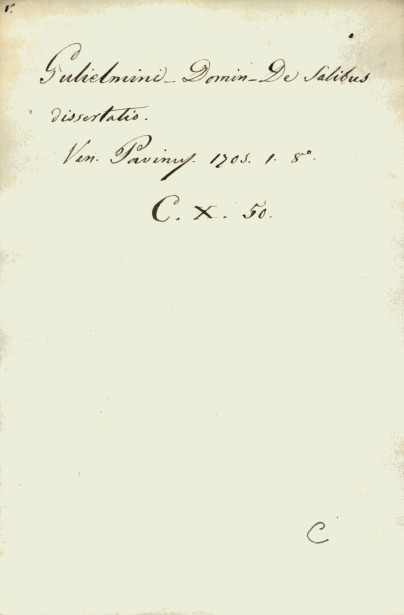 Gulielmini - Domin - De Salibus
dissertatio.
Ven. Pavinus. 1705. 1. 8°.
C. X. 50.
C